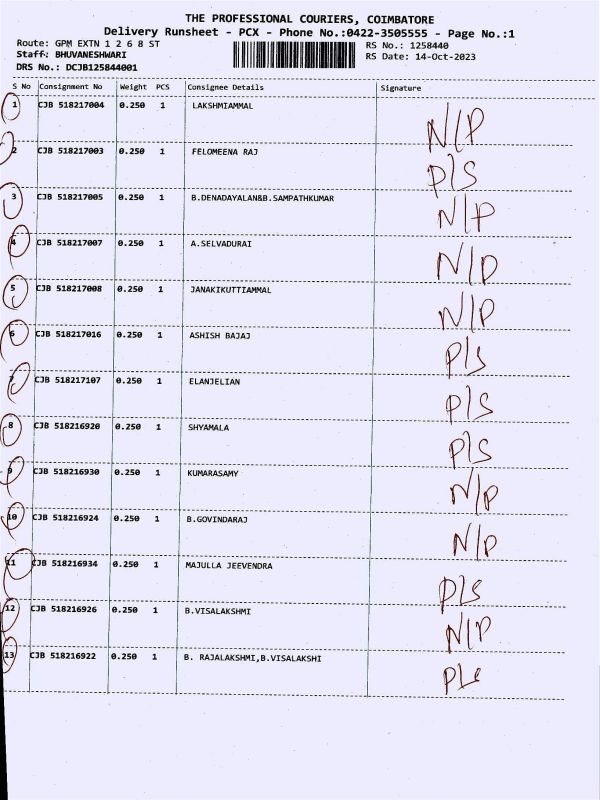 THE PROFESSIONAL COURIERS, COIMBATORE
Delivery Runsheet - PCX - Phone No.:0422-3505555 - Page No.:1
Route: GPM EXTN 1 2 6 8 ST RS No.: 1258440
Staff: BHUVANESHWARI RS Date: 14-Oct-2023
DRS No.: DCJB125844001
S No Consignment No Weight PCS Consignee Details Signature
1 CJB 518217004 0.250 1 LAKSHMIAMMAL N/P
2 CJB 518217003 0.250 1 FELOMEENA RAJ P/S
3 CJB 518217005 0.250 1 B.DENADAYALAN&B.SAMPATHKUMAR N/P
4 CJB 518217007 0.250 1 A.SELVADURAI N/P
5 CJB 518217008 0.250 1 JANAKIKUTTIAMMAL N/P
6 CJB 518217016 0.250 1 ASHISH BAJAJ P/S
7 CJB 518217107 0.250 1 ELANJELIAN P/S
8 CJB 518216920 0.250 1 SHYAMALA P/S
9 CJB 518216930 0.250 1 KUMARASAMY N/P
10 CJB 518216924 0.250 1 B.GOVINDARAJ N/P
11 CJB 518216934 0.250 1 MAJULLA JEEVENDRA P/S
12 CJB 518216926 0.250 1 B.VISALAKSHMI N/P
13 CJB 518216922 0.250 1 B. RAJALAKSHMI,B.VISALAKSHI P/S